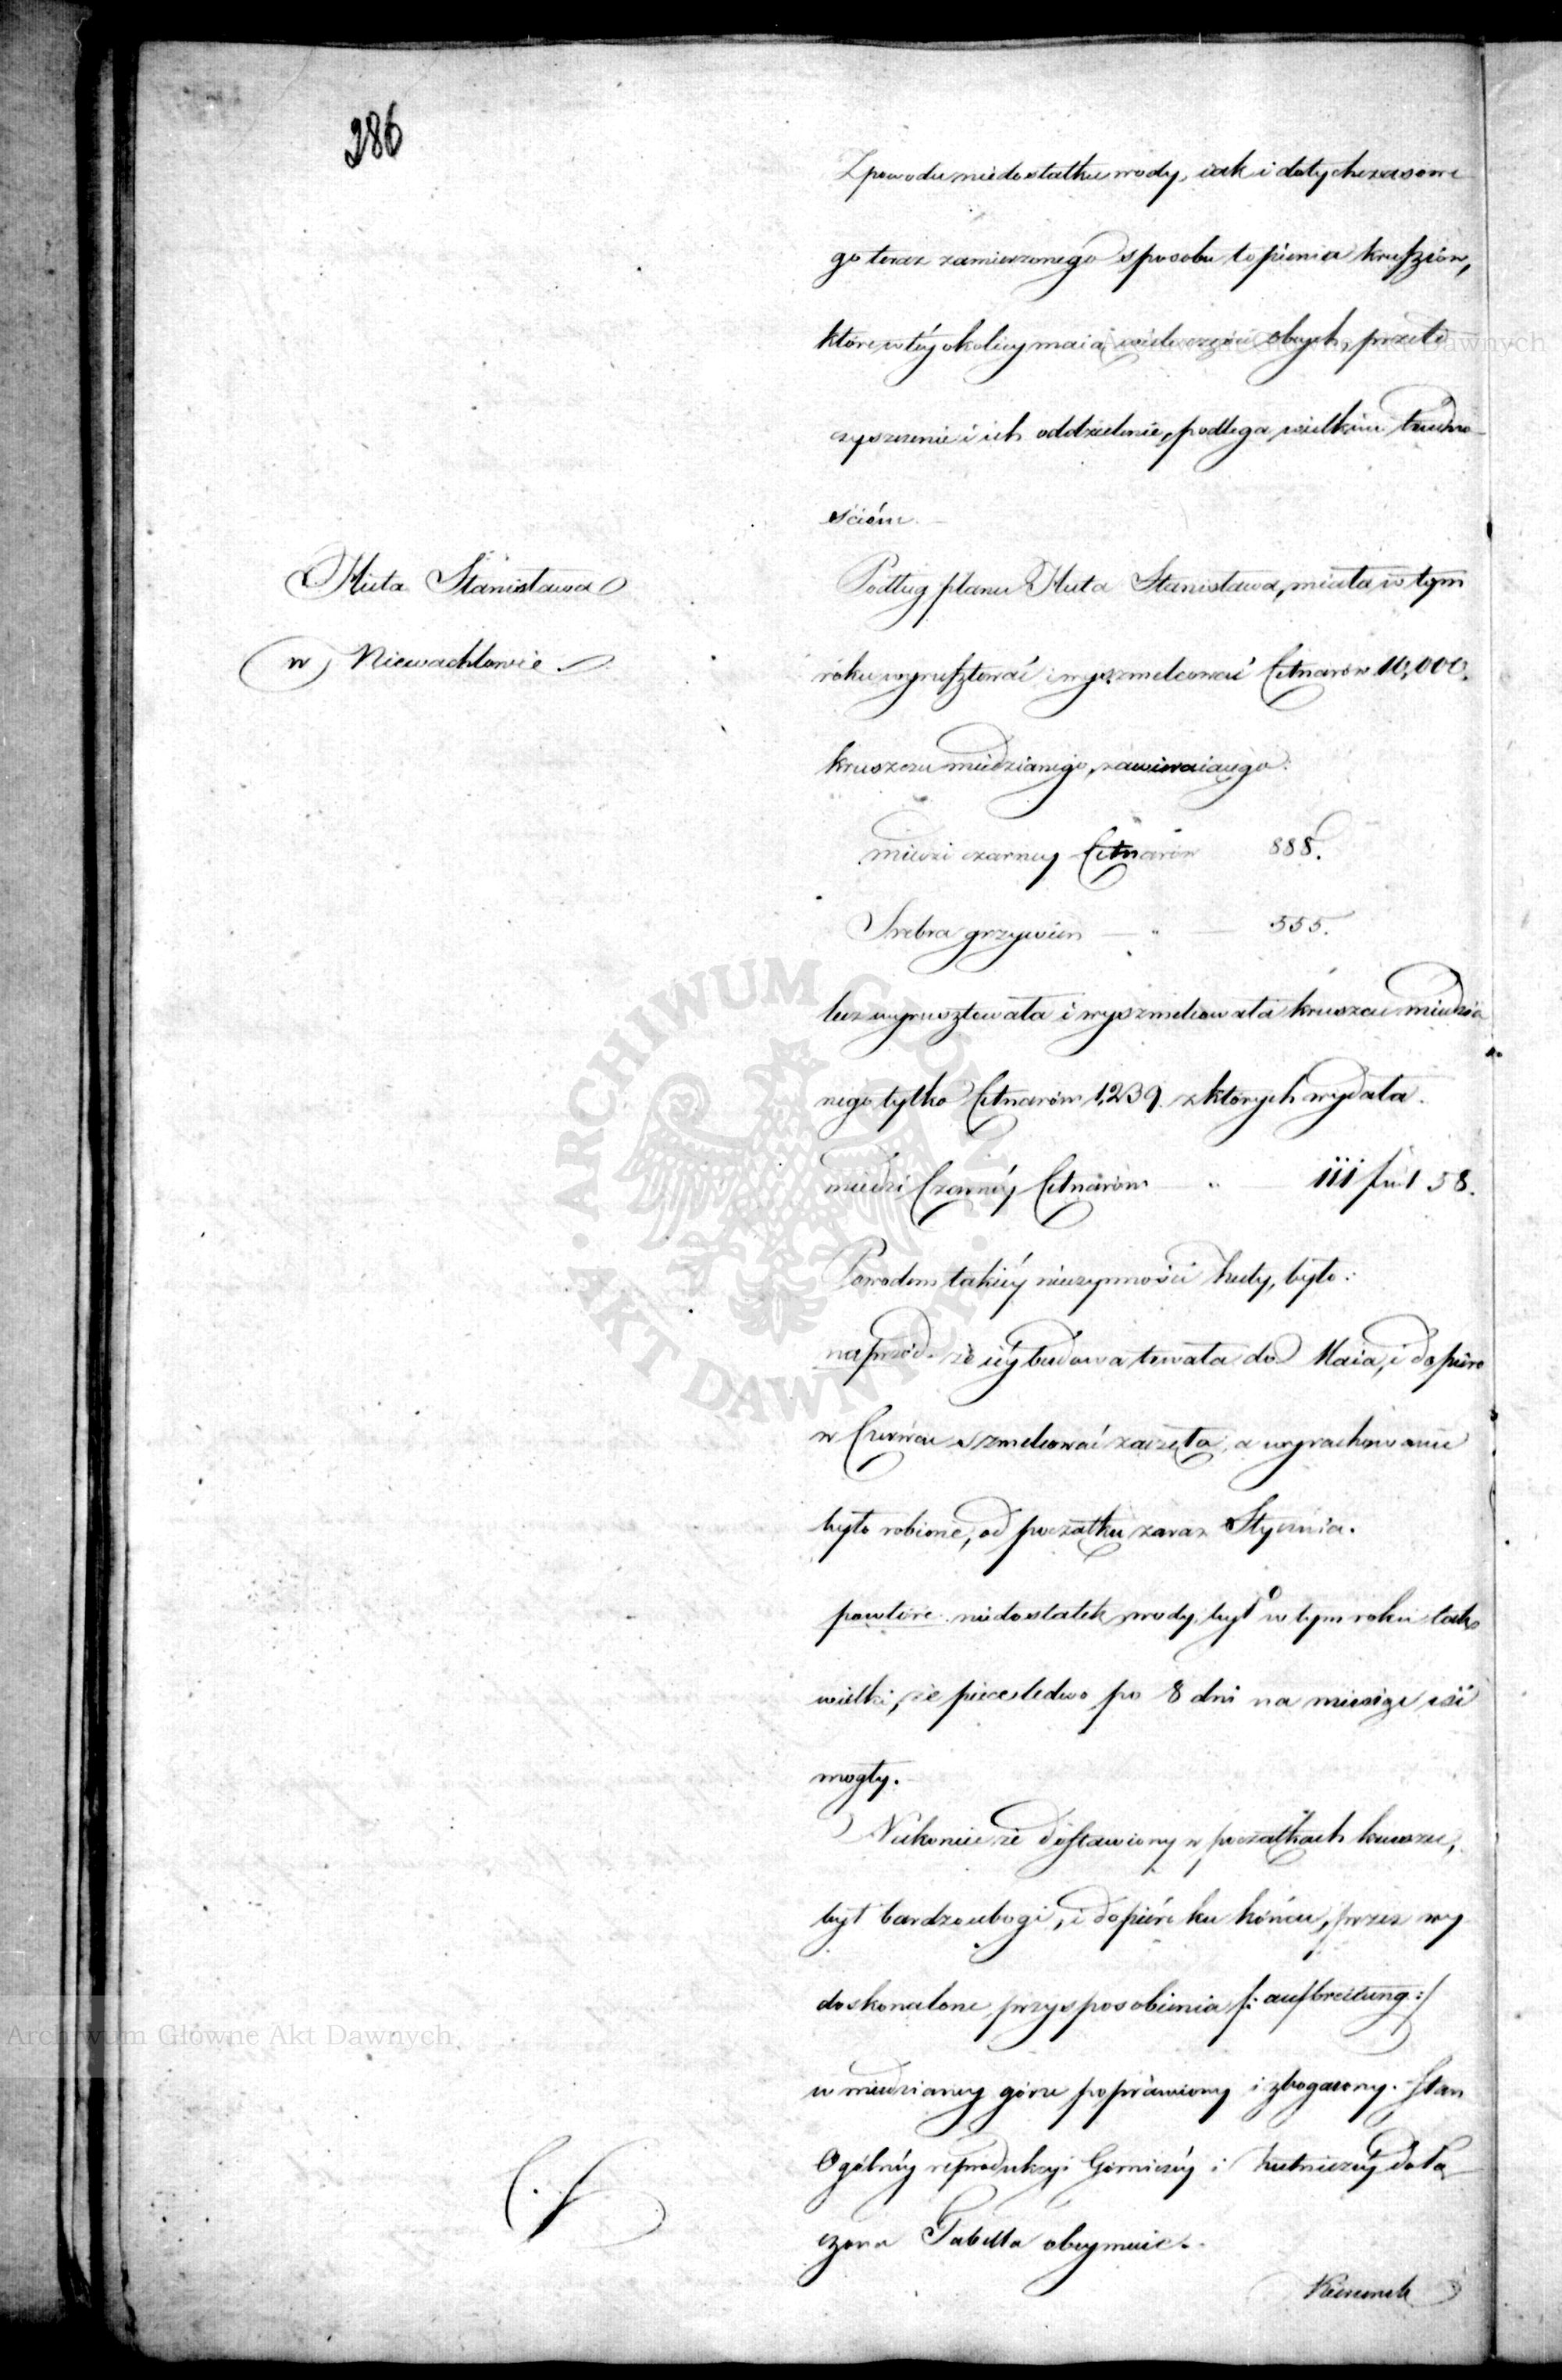 286
Z powodu niedostatku wody, iak i dotychczasowe
go teraz zamierzonego sposobu topienia kruszców,
które w téy okolicy maią wiele części obcych, przeto
czyszczenie i ich oddzielenie, podlega wielkim trudno
ściom.
Huta Stanisława
w Niewachlowie
Podług planu Huta Stanisława, miała w tym
roku wyrusztować i wyszmelcować Cetnarów 10,000.
kruszcu miedzianego, zawieraiącego:
miedzi czarney Cetnarów 888.
Srebra grzywien — " — 555.
lecz wyrusztowała i wyszmelcowała kruszcu miedzia
nego tylko Cetnarów 1,239. z których wydała.
miedzi Czarnéy Cetnarów " 111 funt 58.
Powodem takiéy nieczynności huty, było:
naprzód. że iéy budowa trwała do Maia, i dopiero
w Czerwcu szmelcować zaczęła, a wyrachowanie
było robione, od początku zaraz Stycznia.
powtóre. niedostatek wody, był w tym roku tak
wielki, że piece ledwo po 8 dni na miesiąc iść
mogły.
Nakoniec że dostawiony w początkach kruszec,
był bardzo ubogi, i dopiéro ku końcu, przez wy
doskonalone przysposobienia /: aufbreitung :/
w miedzianey górze poprawiony i zbogacony. Stan
Ogólnéy reprodukcyi Górniczéy i hutniczéy dołą
czona Tabella obeymuie.
Kierunek
Archiwum Główne Akt Dawnych
ARCHIWUM GŁÓWNE AKT DAWNYCH
Archiwum Główne Akt Dawnych